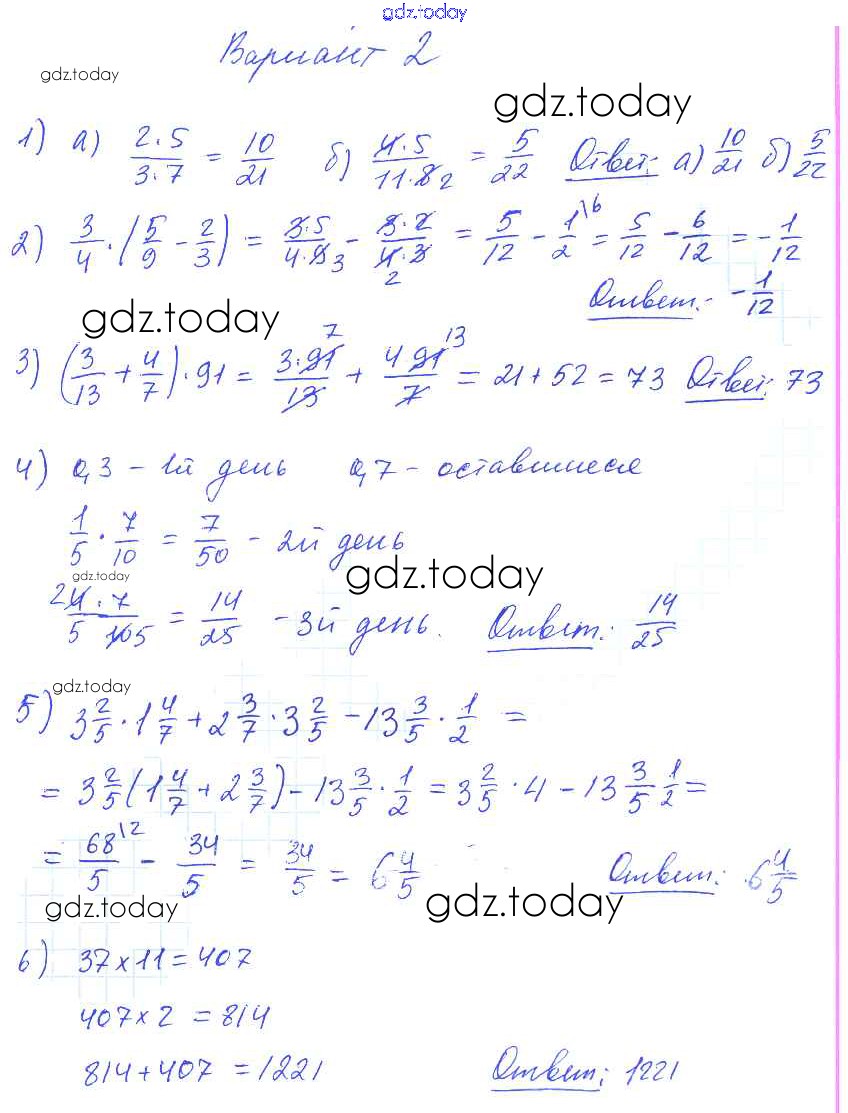 gdz.today
Вариант 2
gdz.today
gdz.today
1) а) 2·5/3·7 = 10/21 б) 4·5/11·8 2 = 5/22 Ответ: а) 10/21 б) 5/22
2) 3/4 · (5/9 - 2/3) = 3·5/4·9 3 - 3·2/4·3 2 = 5/12 - 1/2 \6 = 5/12 - 6/12 = -1/12
Ответ: -1/12
gdz.today
3) (3/13 + 4/7) · 91 = 3·91 7/13 + 4 91 13/7 = 21 + 52 = 73 Ответ: 73
4) 0,3 - 1й день 0,7 - оставшиеся
1/5 · 7/10 = 7/50 - 2й день
gdz.today
gdz.today
2 4·7/5 10 5 = 14/25 - 3й день. Ответ: 14/25
gdz.today
5) 3 2/5 · 1 4/7 + 2 3/7 · 3 2/5 - 13 3/5 · 1/2 =
= 3 2/5 (1 4/7 + 2 3/7) - 13 3/5 · 1/2 = 3 2/5 · 4 - 13 3/5 1/2 =
= 68 \2/5 - 34/5 = 34/5 = 6 4/5 Ответ: 6 4/5
gdz.today
gdz.today
6) 37 x 11 = 407
407 x 2 = 814
814 + 407 = 1221 Ответ: 1221